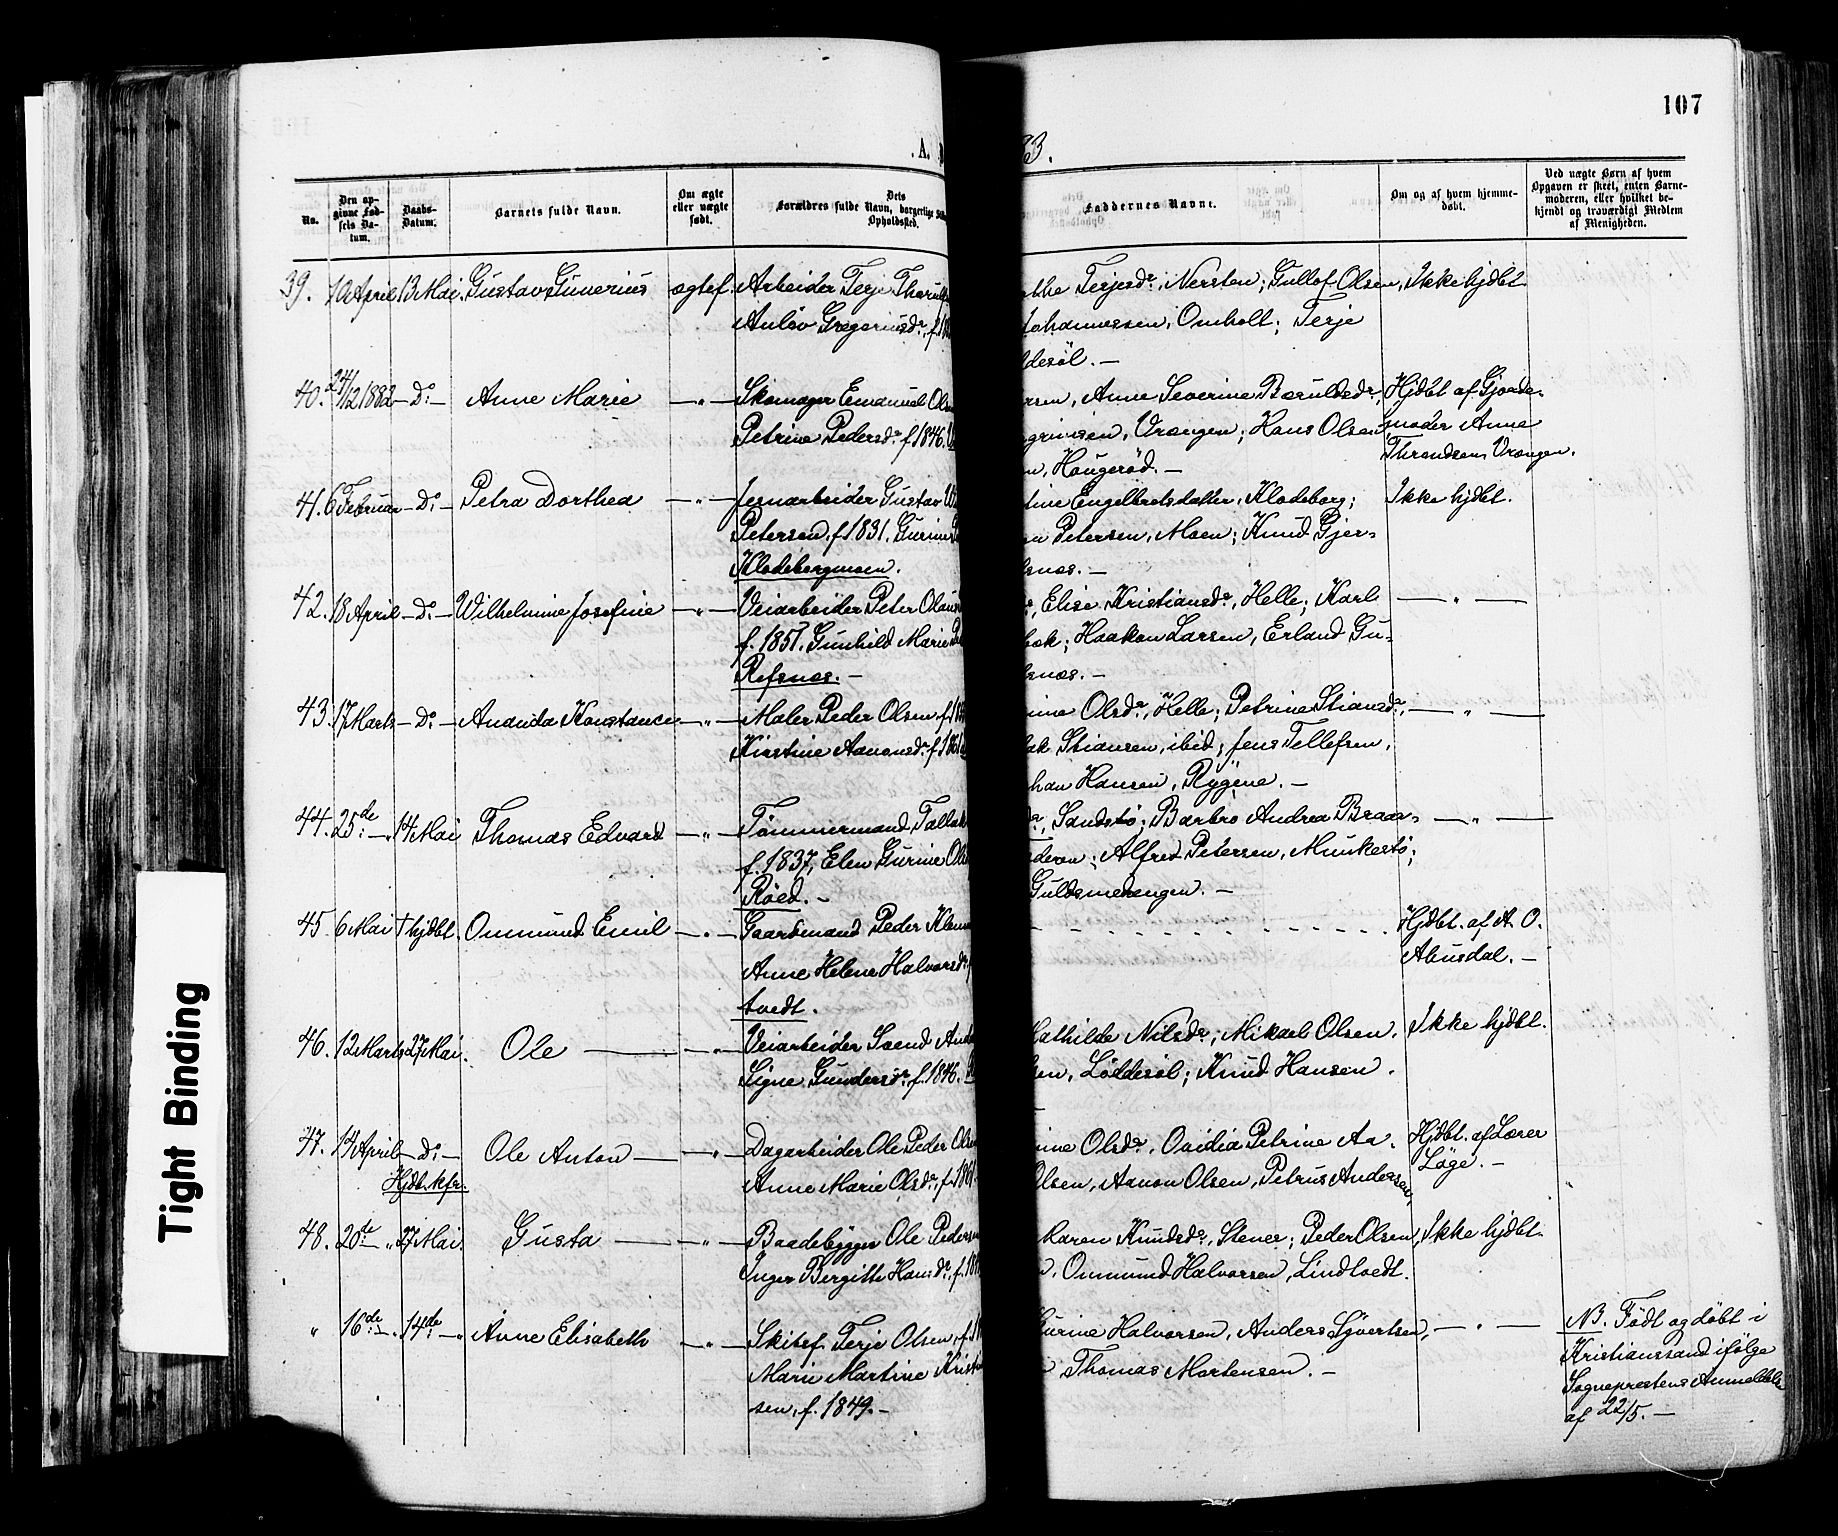 107
.A.
83.
No.
Den op-
givne Fød-
sels Da-
tum.
Daabs-
Datum.
Barnets fulde Navn.
Om ægte
eller uægte
født.
Dets
Forældres fulde Navn, borgerlige
Opholdssted.
Faddernes Navne.
Om og af hvem hjemme-
døbt.
Ved uægte Børn af hvem
Opgaven er skeet, enten Barne-
moderen, eller hvilket be-
kjendt og troværdigt Medlem
af Menigheden.
39. 10 April 13 Mai. Gustav Gunerius ægtef. Arbeider Terje
Anlov Gregoriusdr. f.
Terjesdr. Nersten; Gullof Olsen, Ikke hjdbt
Johannessen, Omholt; Terje
desöl. —
40. 24/12 1882 — Do — Anne Marie — " — Skomager Emanuel Olsen
Petrine Pedersdr. f 1846.
rsen, Anne Severine Bæruldsdr., Hjdbt af Gjorde-
grimsen, Vrængen; Hans Olsen moder Anne
n, Haugeröd. — Throndsen Vrængen.
41. 6 Februar — Do — Petra Dorthea — " — Jernarbeider Gustav
Petersen, f 1831. Gurine
Klodeborgmoen.
tine Engelbretsdatter, Klodeborg; Ikke hjdbt.
en Petersen, Moen; Knud Gjer-
snæs. —
42. 18 April — Do — Wilhelmine Josefine — " — Veiarbeider Peter Olaus
f. 1857. Gunhild Marie
Refsnæs. —
Elise Kristiansdr., Helle; Karl — " —
bæk; Haakon Larsen, Erland Gu-
snæs. —
43. 17 Marts — Do — Ananda Konstance — " — Maler Peder Olsen, f.
Kirstine Aanonsdr. f 1861
ine Olsdr., Helle; Petrine Stiansdr., — " —
ak Stiansen, ibid; Jens Tellefsen,
han Hansen, Rygene. —
44. 25de — " 14 Mai Thomas Edvard — " — Tömmermand Tallak
f. 1837, Elen Gurine Ols
Röed. —
Sandstö; Barbro Andrea Braar- — " —
deren; Alfred Petersen, Munkestö;
Guldsmedengen. —
45. 6 Mai † hjdbt. Ommund Emil — " — Gaardmand Peder Klem
Anne Helene Halvorsdr.
tvedt.
Hjdbt. af A. O.
Abusdal. —
46. 12 Marts 27 Mai. Ole — " — Veiarbeider Svend And
Signe Gundersdr. f. 1846.
Mathilde Nilsdr.; Mikael Olsen, Ikke hjdbt.
sen, Löddesöl; Knud Hansen.
47. 14 April — Do — Ole Anton — " — Dagarbeider Ole Peder Olsen
Hjdbt. kfr. Anne Marie Olsdr., f. 1861.
ine Olsdr., Ovidia Petrine Aa- Hjdbt. af Lærer
Olsen, Aanon Olsen, Petrus Andersen, Löge. —
48. 20de — " 27 Mai. Gusta — " — Baadebygger Ole Pedersen
Inger Bergitte Hansdr., f.
Karen Knudsdr., Stener; Peder Olsen, Ikke hjdbt.
Ommund Halvorsen, Lindtvedt.
" 16de — " 14de — " Anne Elisabeth — " — Skibsf. Terje Olsen, f.
Marie Martine Kristi
sen, f. 1849. —
Gurine Halvorsen, Anders Syvertsen, — " — NB. Födt og döbt i
Thomas Mortensen. — Kristianssand ifölge
Sogneprestens Anmeldelse
af 22/5. —
Tight Binding